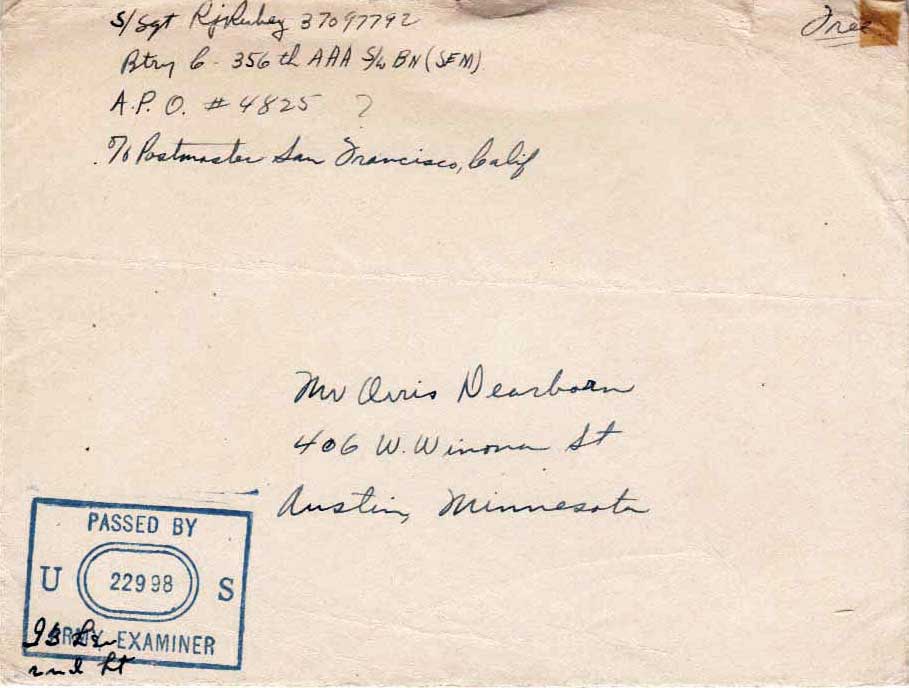 S/Sgt 37097792
Free
Btry C - 356th AAA S/L BN (SEM)
A.P.O. # 4825 ?
c/o Postmaster San Francisco, Calif
Mr Orris Dearborn
406 W. Winona St
Austin, Minnesota
PASSED BY
U 22998 S
ARMY EXAMINER
2nd Lt